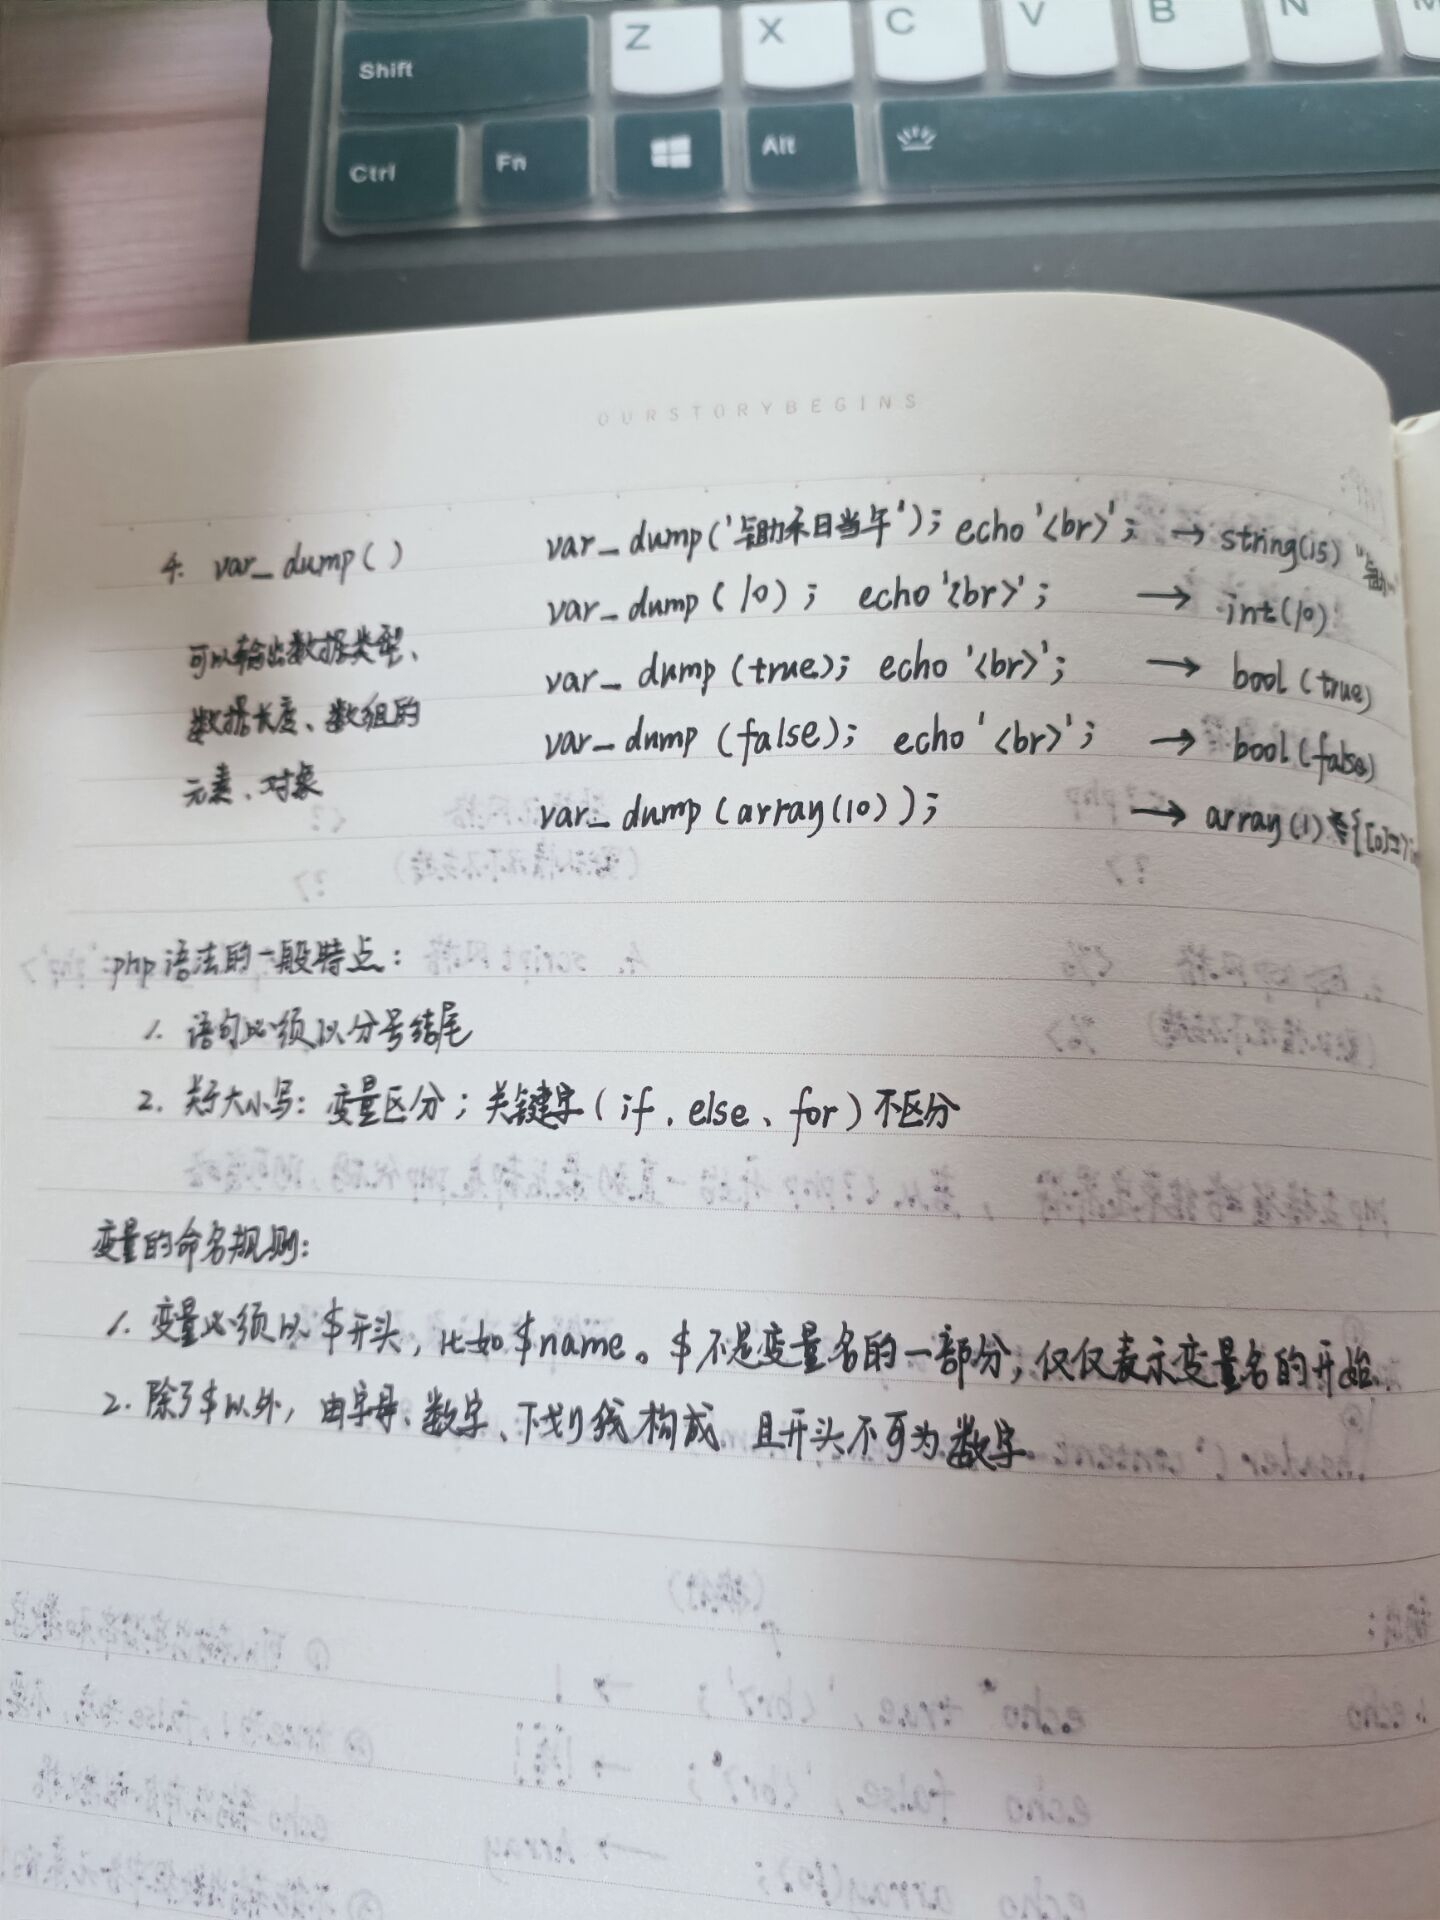 Shift
Z
X
C
V
B
N
M
Ctrl
Fn
Alt
OURSTORYBEGINS
4. var_dump()
可以输出数据类型、
数据长度、数组的
元素、对象
var_dump('与助禾日当午'); echo'<br>'; → string(15)
var_dump(10); echo'<br>'; → int(10)
var_dump(true); echo'<br>'; → bool(true)
var_dump(false); echo'<br>'; → bool(false)
var_dump(array(10)); → array(1) {[0]=>in
php语法的一般特点:
1. 语句必须以分号结尾
2. 关于大小写: 变量区分; 关键字(if、else、for)不区分
变量的命名规则:
1. 变量必须以$开头, 比如$name。$不是变量名的一部分, 仅仅表示变量名的开始.
2. 除了$以外, 由字母、数字、下划线构成 且开头不可为数字